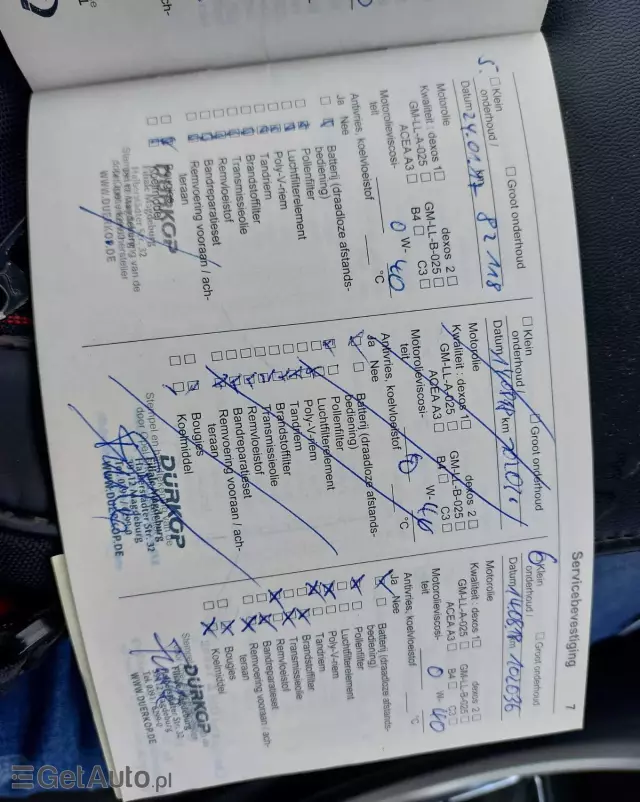 Servicebevestiging 7
5. Klein onderhoud / Groot onderhoud
Datum 24.01.17 82 118
Motorolie
Kwaliteit : dexos 1 dexos 2
GM-LL-A-025 GM-LL-B-025
ACEA A3 B4 C3
Motorolieviscosi-
teit 0 W- 40
Antivries, koelvloeistof °C
Ja Nee
Batterij (draadloze afstands-
bediening)
Pollenfilter
Luchtfilterelement
Poly-V-riem
Tandriem
Brandstoffilter
Transmissieolie
Remvloeistof
Bandreparatieset
Remvoering vooraan / ach-
teraan
DÜRKOP
WWW.DUERKOP.DE
Klein onderhoud / Groot onderhoud
Datum km
Motorolie
Kwaliteit : dexos 1 dexos 2
GM-LL-A-025 GM-LL-B-025
ACEA A3 B4 C3
Motorolieviscosi-
teit 0 W- 40
Antivries, koelvloeistof °C
Ja Nee
Batterij (draadloze afstands-
bediening)
Pollenfilter
Luchtfilterelement
Poly-V-riem
Tandriem
Brandstoffilter
Transmissieolie
Remvloeistof
Bandreparatieset
Remvoering vooraan / ach-
teraan
Bougies
Koelmiddel
Stempel en
DÜRKOP
Magdeburg
WWW.DUERKOP.DE
6 Klein onderhoud / Groot onderhoud
Datum km 101036
Motorolie
Kwaliteit : dexos 1 dexos 2
GM-LL-A-025 GM-LL-B-025
ACEA A3 B4 C3
Motorolieviscosi-
teit 0 W- 40
Antivries, koelvloeistof °C
Ja Nee
Batterij (draadloze afstands-
bediening)
Pollenfilter
Luchtfilterelement
Poly-V-riem
Tandriem
Brandstoffilter
Transmissieolie
Remvloeistof
Bandreparatieset
Remvoering vooraan / ach-
teraan
Bougies
Koelmiddel
DÜRKOP
WWW.DUERKOP.DE
GetAuto.pl